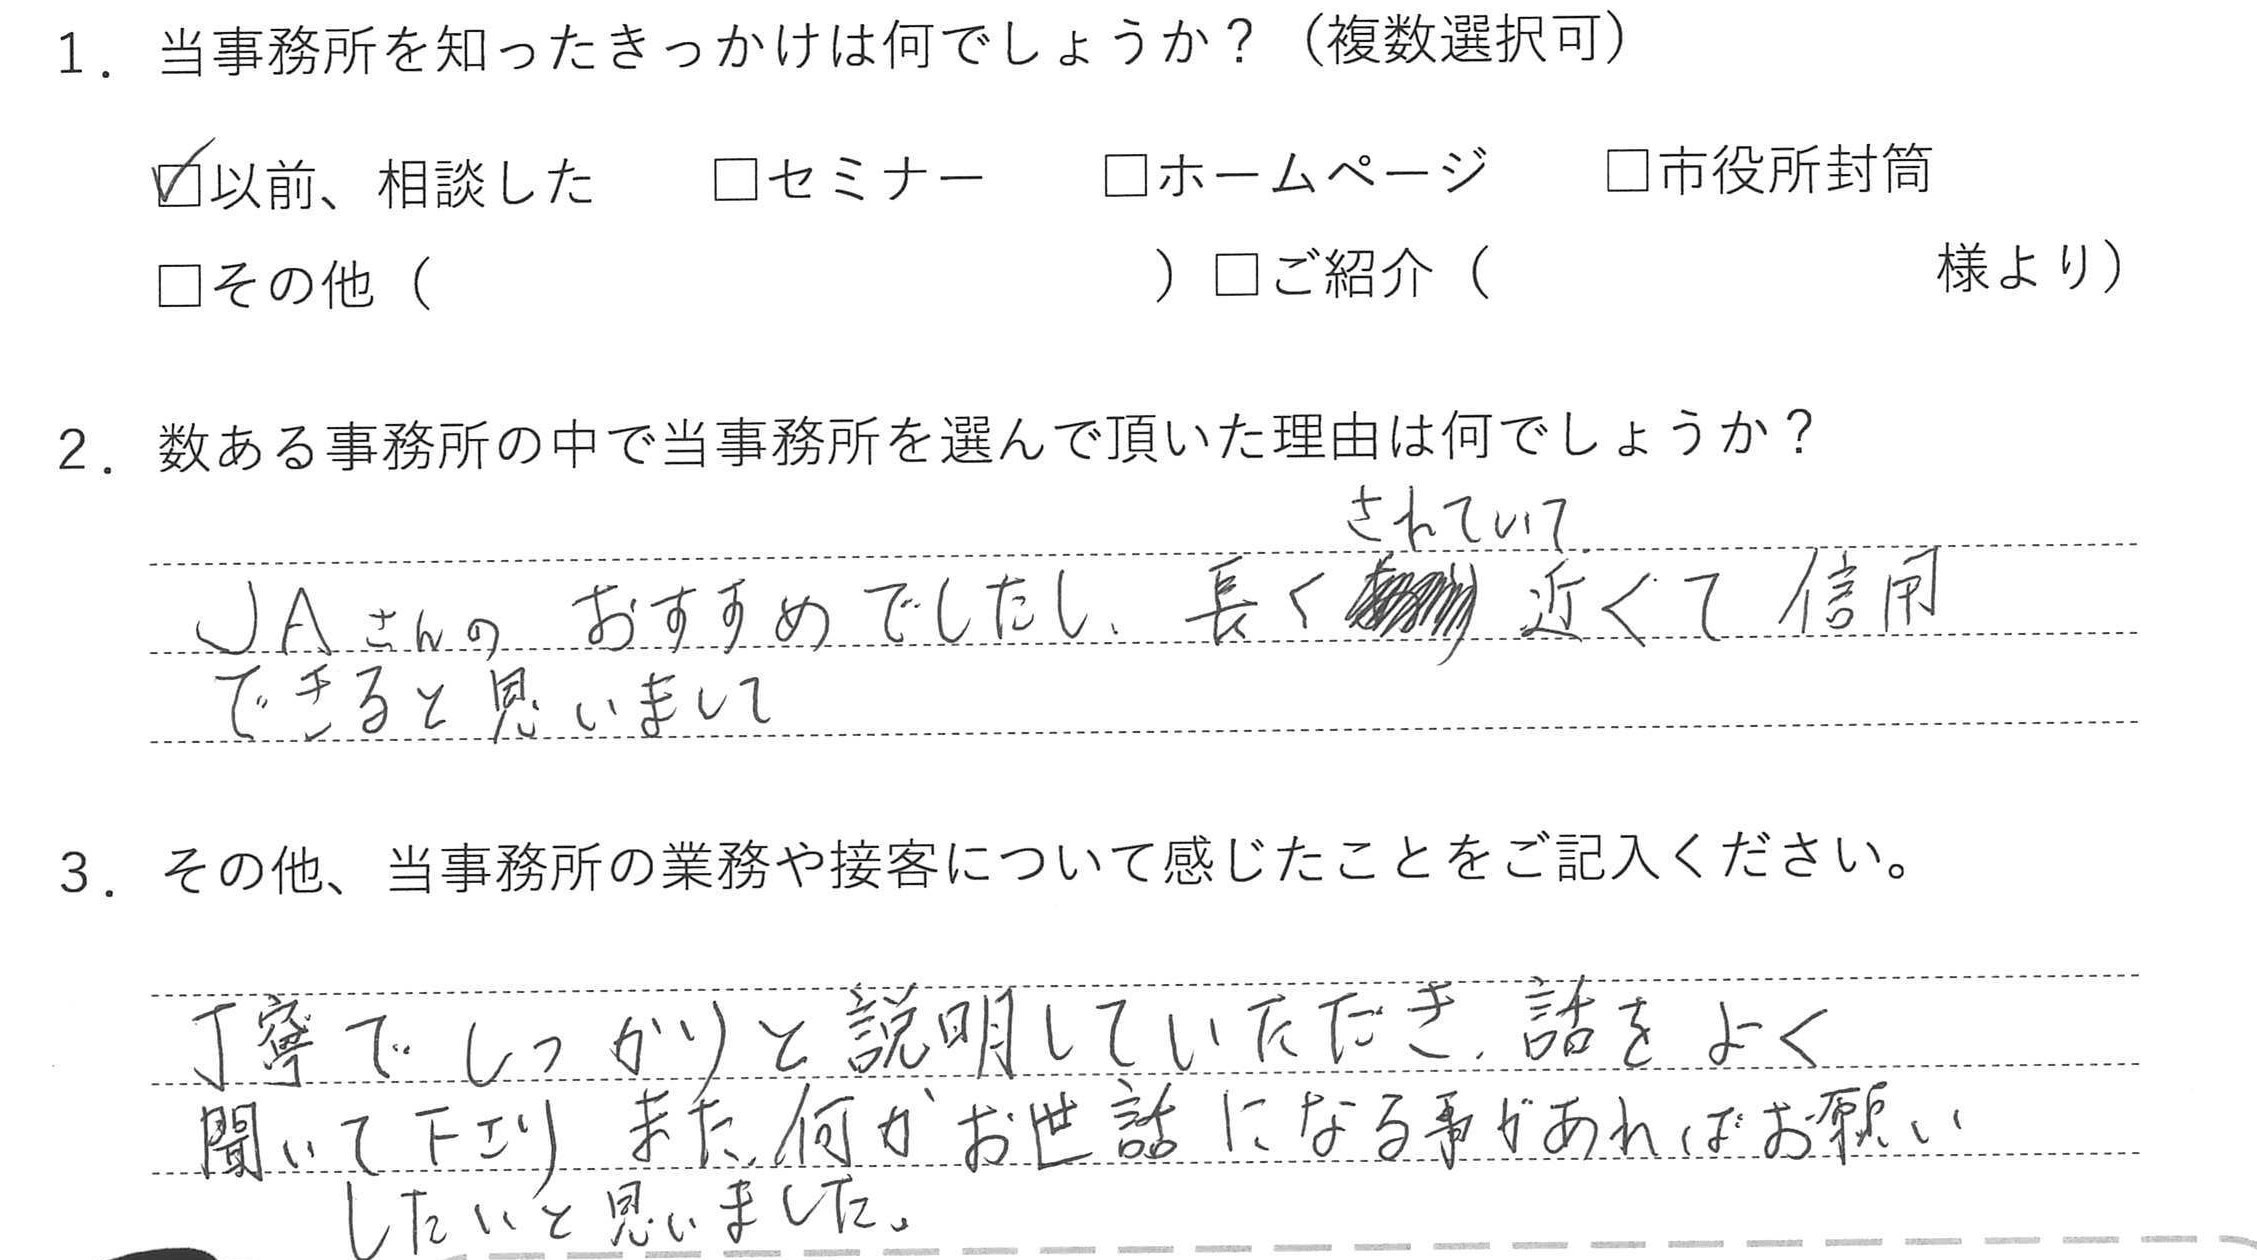 1. 当事務所を知ったきっかけは何でしょうか？（複数選択可）
☑以前、相談した □セミナー □ホームページ □市役所封筒
□その他（ ）□ご紹介（ 様より）
2. 数ある事務所の中で当事務所を選んで頂いた理由は何でしょうか？
されていて
JAさんの おすすめでしたし、長く 近くて信用
できると思いまして
3. その他、当事務所の業務や接客について感じたことをご記入ください。
丁寧でしっかりと説明していただき、話をよく
聞いて下さり また、何かお世話になる事があればお願い
したいと思いました。